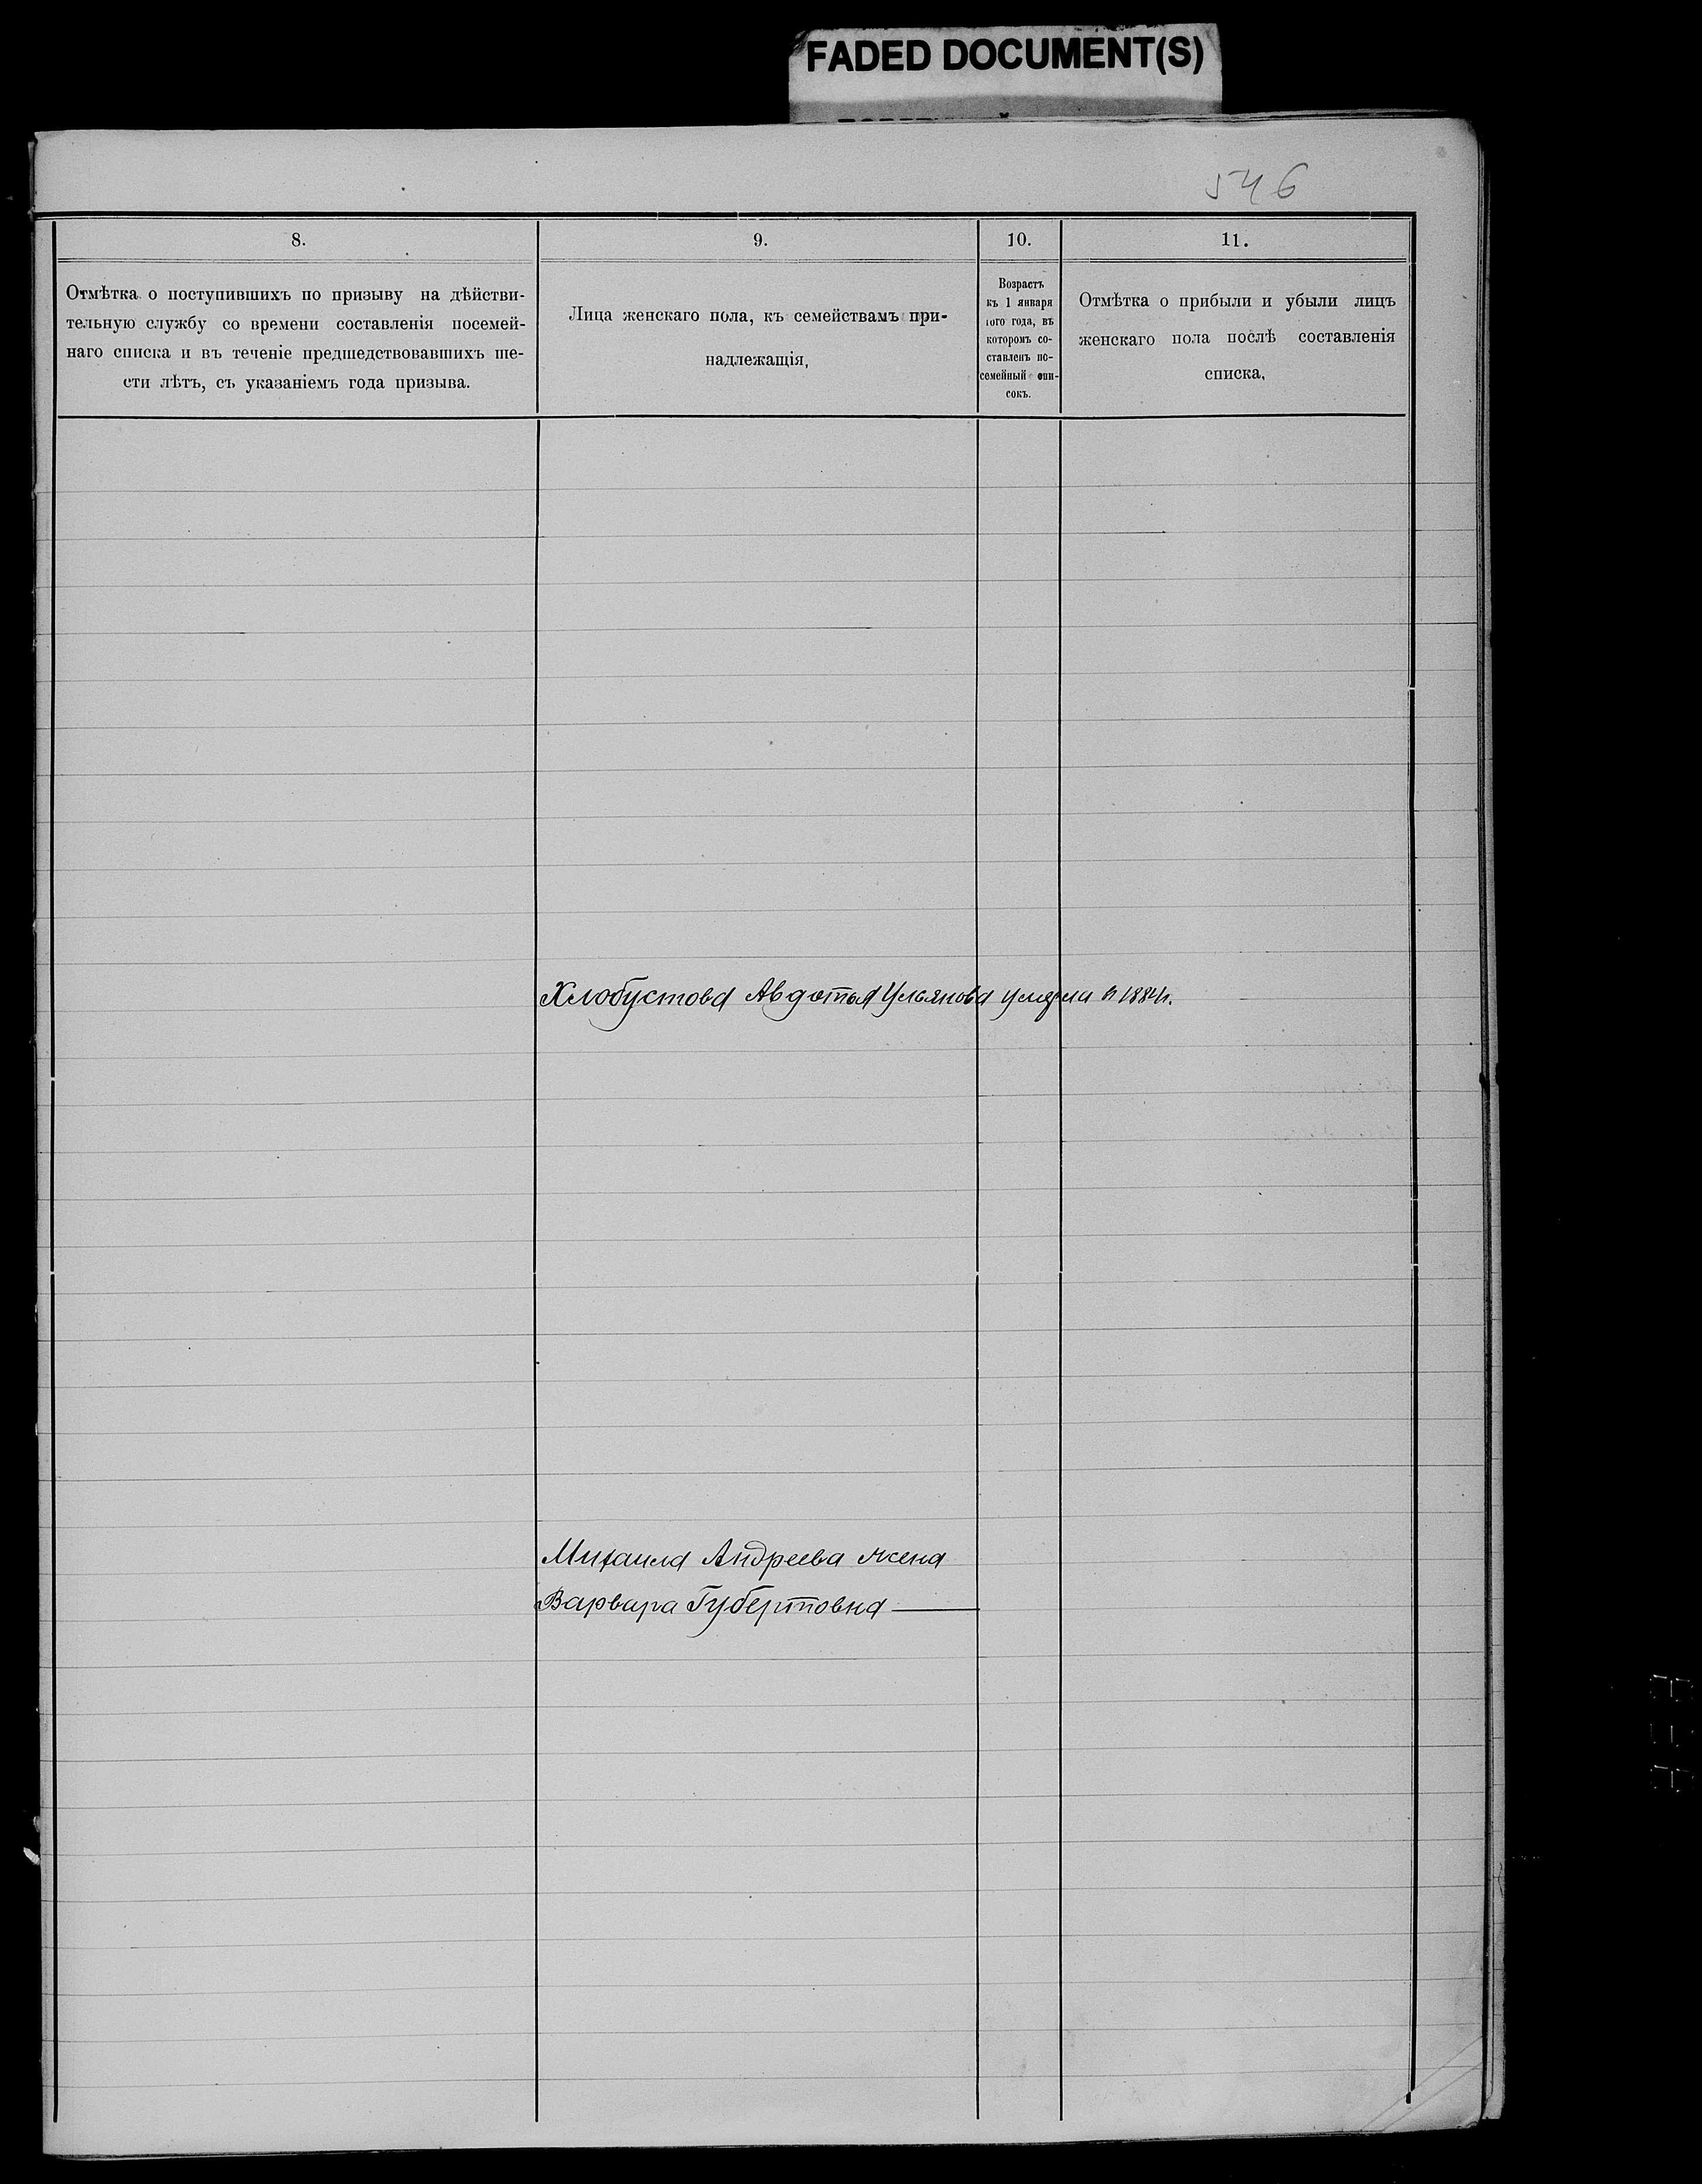 FADED DOCUMENT(S)
546
8.
9.
10.
11.
Отмѣтка о поступившихъ по призыву на дѣйстви-
тельную службу со времени составленія посемей-
наго списка и въ теченіе предшедствовавшихъ ше-
сти лѣтъ, съ указаніемъ года призыва.
Лица женскаго пола, къ семействамъ при-
надлежащія,
Возрастъ
къ 1 января
того года, въ
которомъ со-
ставленъ по-
семейный спи-
сокъ.
Отмѣтка о прибыли и убыли лицъ
женскаго пола послѣ составленія
списка,
Хлобустова Авдотья Ульянова умерла в 1884г.
Михаила Андреева жена
Варвара Губертовна